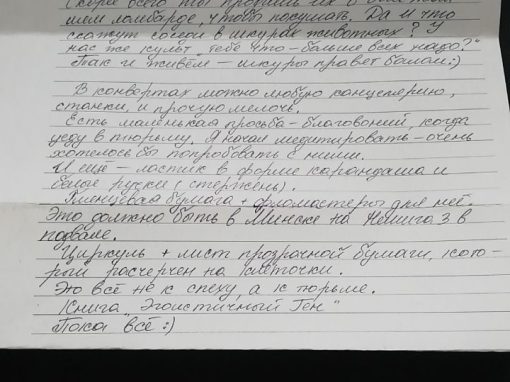 скорее всего ты пропишь их в
шем ломбарде, чтобы послушать. Да и что
скажут соседи в шкурах животных? У
нас же культ „тебе что-больше всех надо?"
Так и живём - шкуры правят балом:)
В конвертах можно любую канцелярию,
станки, и прочую мелочь.
Есть маленькая просьба - благовоний, когда
уеду в тюрьму. Я начал медитировать - очень
хотелось бы попробовать с ними.
И ещё - ластик в форме карандаша и
белые ручки (стержень).
Глянцевая бумага + фломастеры для неё.
Это должно быть в Минске на Немига 3 в
подвале.
Циркуль + лист прозрачной бумаги, кото-
рый расчерчен на клеточки.
Это всё не к спеху, а к тюрьме.
Книга „Эгоистичный Ген"
Пока всё :)